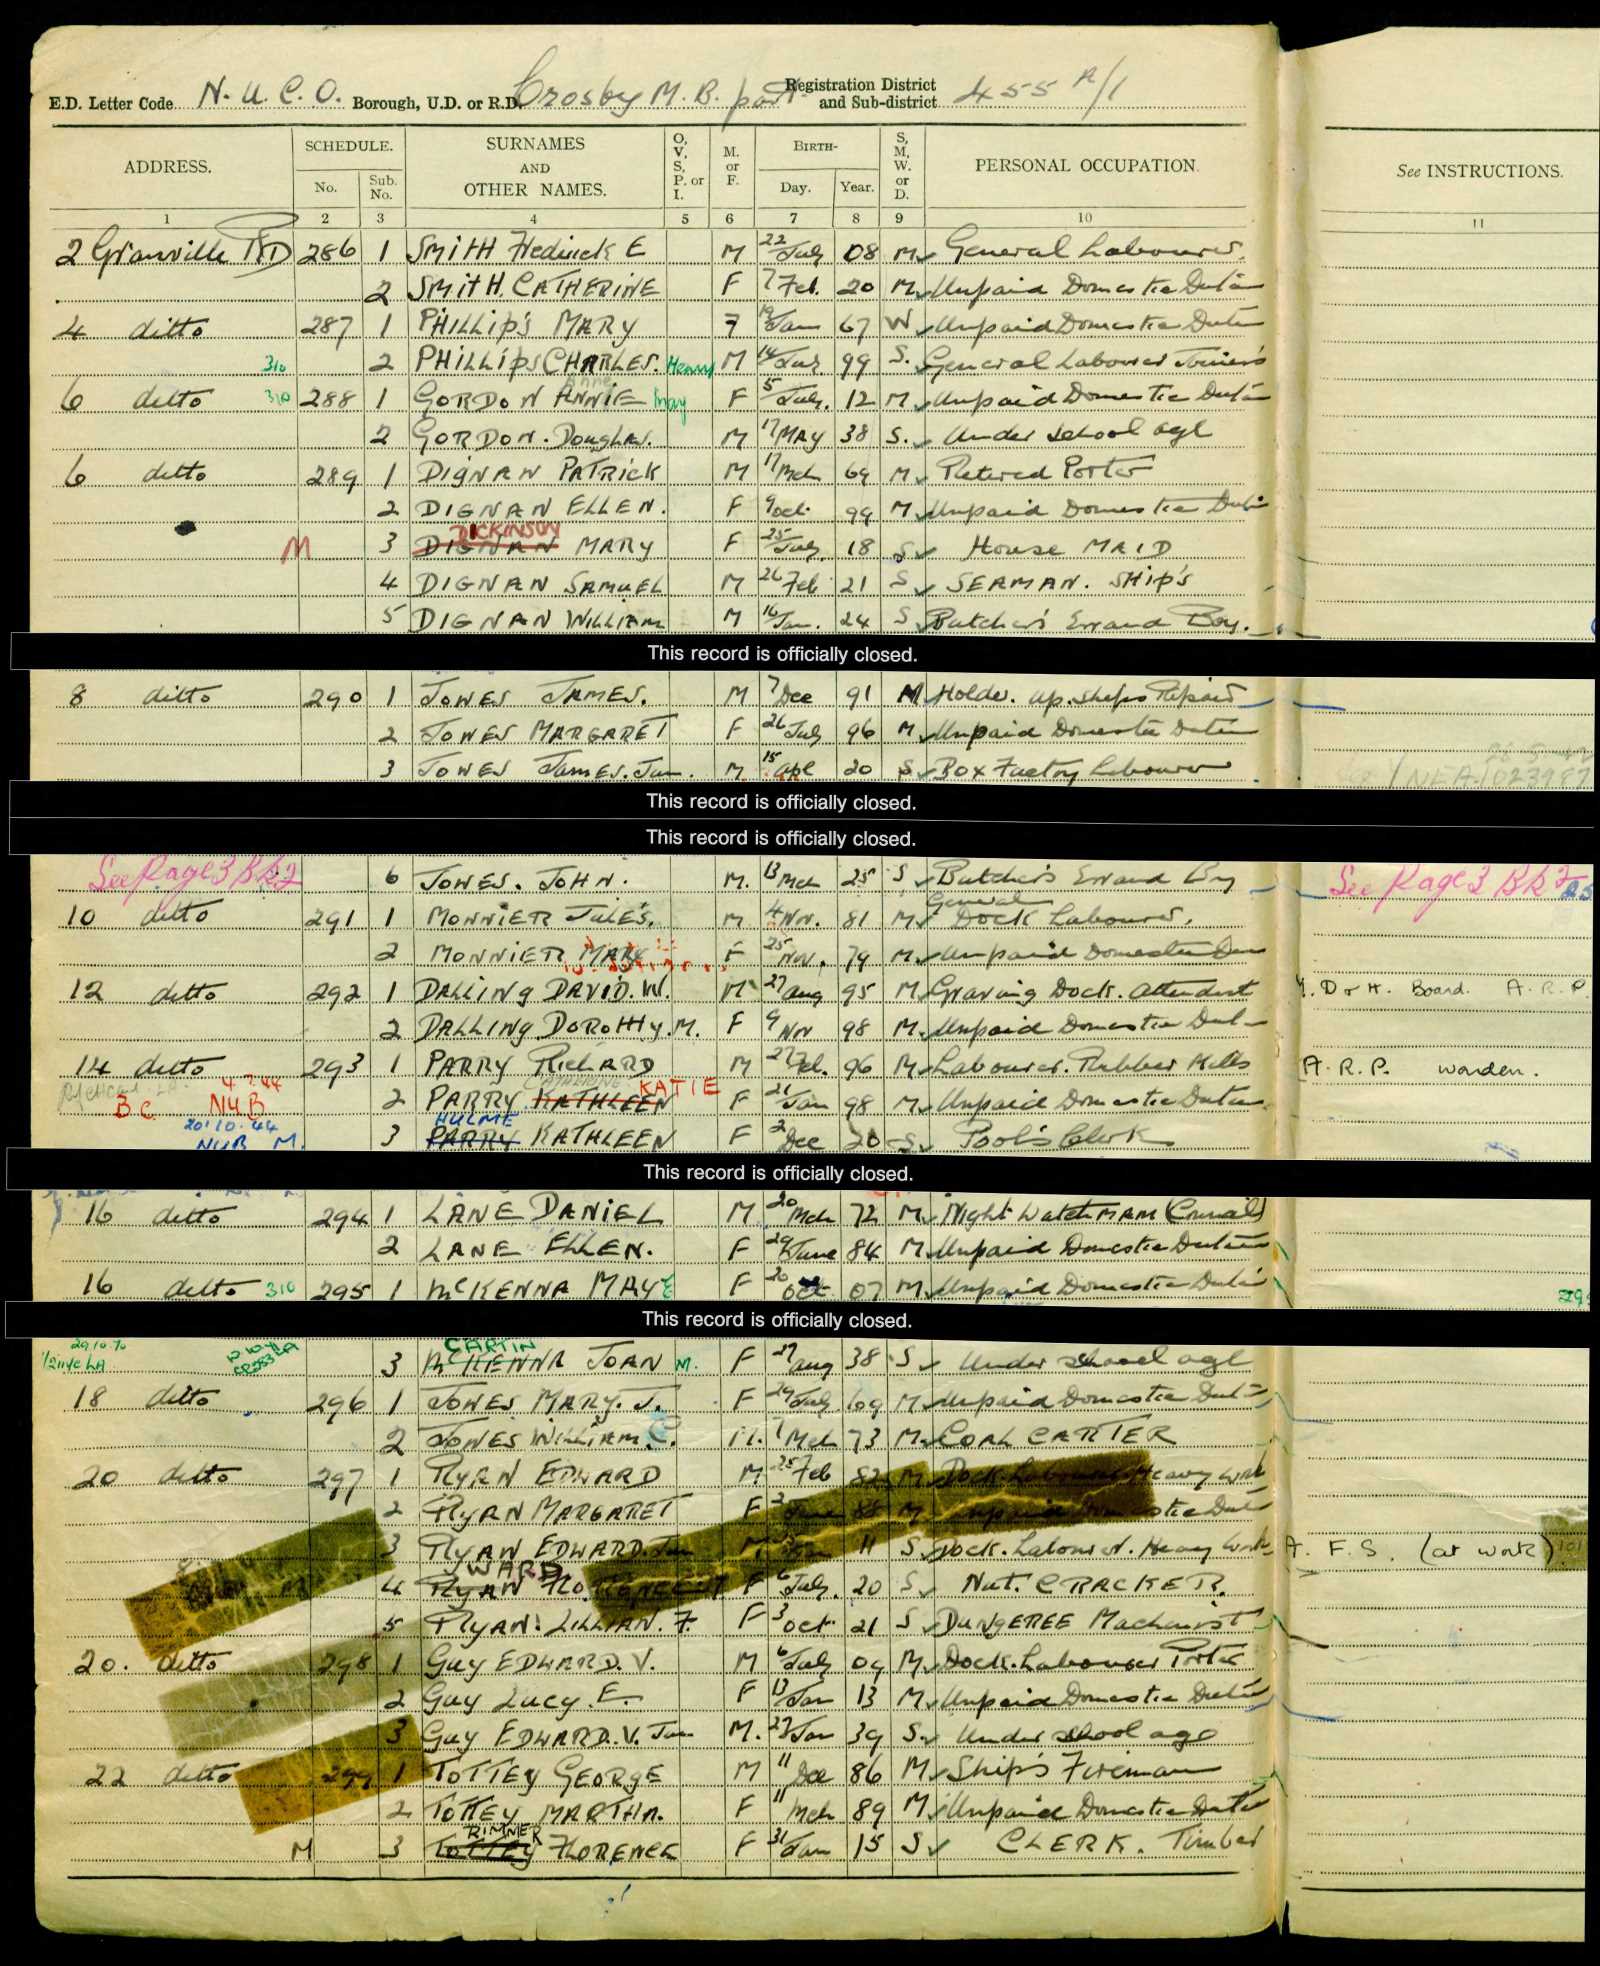 E.D. Letter Code N.U.C.O. Borough, U.D. or R.D. Crosby M.B. part Registration District and Sub-district 455 A/1
ADDRESS. SCHEDULE. No. Sub. No. SURNAMES AND OTHER NAMES. O, V, S, P. or I. M. or F. BIRTH- Day. Year. S, M, W. or D. PERSONAL OCCUPATION. See INSTRUCTIONS.
1 2 3 4 5 6 7 8 9 10 11
2 Granville RD 286 1 SMITH Frederick E M 22 July 08 M General Labourer.
2 SMITH. CATHERINE F 7 Feb. 20 M Unpaid Domestic Duties
4 ditto 287 1 PHILLIPS MARY F 19 Jan 67 W Unpaid Domestic Duties
310 2 PHILLIPS CHARLES. Henry M 14 99 S. General Labourer Joiner's
Anne
6 ditto 310 288 1 GORDON ANNIE May F 5 July. 12 M Unpaid Domestic Duties
2 GORDON. Douglas. M 17 MAY 38 S. Under school age
6 ditto 289 1 DIGNAN PATRICK M 17 Mch 69 M Retired Porter
2 DIGNAN ELLEN. F 9 Oct. 99 M Unpaid Domestic Duties
DICKINSON
M 3 DIGNAN MARY F 25 July 18 S House MAID
4 DIGNAN SAMUEL M 26 Feb 21 S SEAMAN. SHIP'S
5 DIGNAN WILLIAM M 16 Jan. 24 S Butcher's Errand Boy.
This record is officially closed.
8 ditto 290 1 JONES JAMES. M 7 Dec 91 M Holder. up. Ships Repair
2 JONES MARGARET F 26 July 96 M Unpaid Domestic Duties
3 JONES James. Jun. M 15 Apl 20 S Box Factory Labourer
This record is officially closed.
This record is officially closed.
See Page 3 Bk 2 6 JONES. JOHN. M. 13 Mch 25 S Butcher's Errand Boy See Page 3 Bk 2
General
10 ditto 291 1 MONNIER JULES. M 4 Nov. 81 M Dock Labourer.
2 MONNIER MARY F 25 Nov. 79 M Unpaid Domestic Duties
12 ditto 292 1 DALLING DAVID. W. M 27 Aug 95 M Graving Dock. Attendant M. D & H. Board. A.R.P.
2 DALLING. DOROTHY. M. F 9 Nov 98 M Unpaid Domestic Duties
14 ditto 293 1 PARRY RICHARD M 27 Feb. 96 M Labourer. Rubber Mills A.R.P. warden.
CATHERINE KATIE
BC 4.7.44 NUB 2 PARRY KATHLEEN F 21 Jan 98 M Unpaid Domestic Duties
HULME
20.10.44 NUB M. 3 PARRY KATHLEEN F 2 Dec 20 S Pool's Clerk
This record is officially closed.
16 ditto 294 1 LANE DANIEL M 20 Mch 72 M Night Watchman (Council)
2 LANE ELLEN. F 29 June 84 M Unpaid Domestic Duties
16 ditto 310 295 1 McKENNA MAY E F 20 Oct 07 M Unpaid Domestic Duties
This record is officially closed.
CARTIN
3 McKENNA JOAN M. F 27 Aug 38 S Under school age
18 ditto 296 1 JONES MARY. J. F 29 July 69 M Unpaid Domestic Duties
2 JONES WILLIAM. C. M. 7 Mch 73 M COAL CARTER
20 ditto 297 1 RYAN EDWARD M 25 Feb 82 M Dock. Labourer. Heavy Work
2 RYAN MARGARET F 2 June 88 M Unpaid Domestic Duties
3 RYAN EDWARD. Jun M Jan 11 S Dock. Labourer. Heavy Work A.F.S. (at work)
WARD
4 RYAN F 6 July. 20 S Nut. CRACKER.
5 RYAN. LILLIAN. F. F 3 Oct. 21 S DUNGEREE Machinist
20. ditto 298 1 Guy EDWARD. V. M 6 July 09 M Dock. Labourer Porter
2 Guy Lucy E. F 13 Jan 13 M Unpaid Domestic Duties
3 Guy EDWARD. V. Jun M. 27 Jan 39 S Under school age
22 ditto 299 1 TOTTEY GEORGE M 11 Dec 86 M Ship's Fireman
2 TOTTEY MARTHA. F 11 Mch 89 M Unpaid Domestic Duties
RIMMER
M 3 TOTTEY FLORENCE F 31 Jan 15 S CLERK. Timber